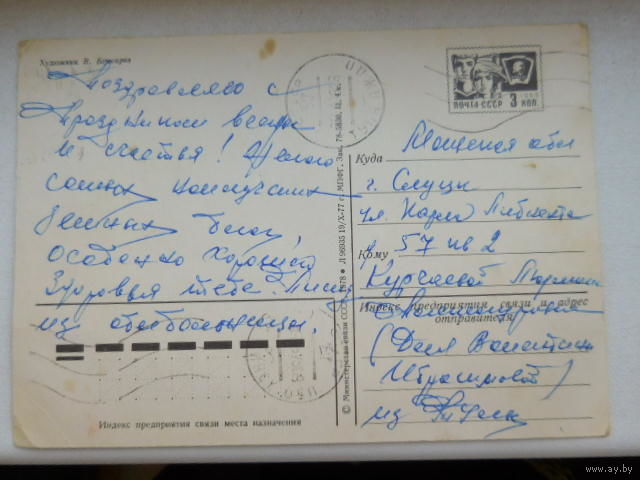 Художник В. Бочкарев
Поздравляю с
праздником весны
и счастья! Желаю
самых наилучших
земных благ,
особенно хорошего
здоровья тебе. Пишу
из больницы.
ПОЧТА СССР 3 КОП.
Куда Минская обл
г. Слуцк
ул. Карла Либкнехта
57 кв 2
Кому
Курсаевой Людмиле
Индекс предприятия связи и адрес
отправителя
(Для Валентины
Ибрагимовой)
из
© Министерство связи СССР, 1978
Л 96935 19/X-77 г. МПФГ. Зак. 78-5830. Ц. 4 к.
Индекс предприятия связи места назначения
www.ay.by